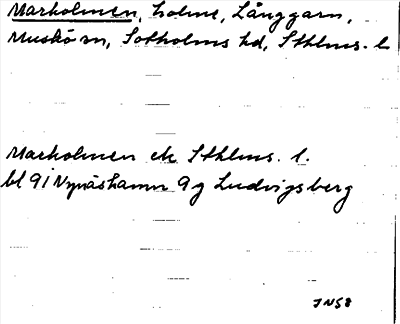 Marholmen, holme, Långgarn,
Muskö sn, Sotholms hd, Sthlms. l.
Marholmen ek Sthlms. l.
bl 9i Nynäshamn 9g Ludvigsberg
JNS8